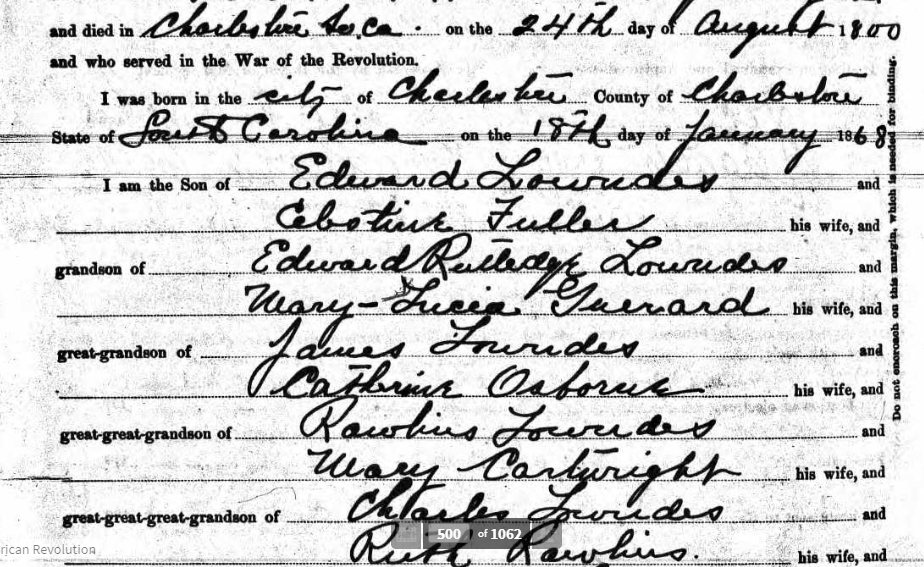 and died in Charleston So. Ca. on the 24th day of August 1800
and who served in the War of the Revolution.
I was born in the city of Charleston County of Charleston
State of South Carolina on the 18th day of January 1868
I am the Son of Edward Lowndes and
Celestine Fuller his wife, and
grandson of Edward Rutledge Lowndes and
Mary-Lucia Guerard his wife, and
great-grandson of James Lowndes and
Catherine Osborne his wife, and
great-great-grandson of Rawlins Lowndes and
Mary Cartwright his wife, and
great-great-great-grandson of Charles Lowndes and
Ruth Rawlins. his wife, and
Do not encroach on this margin, which is needed for binding.
500 of 1062
rican Revolution